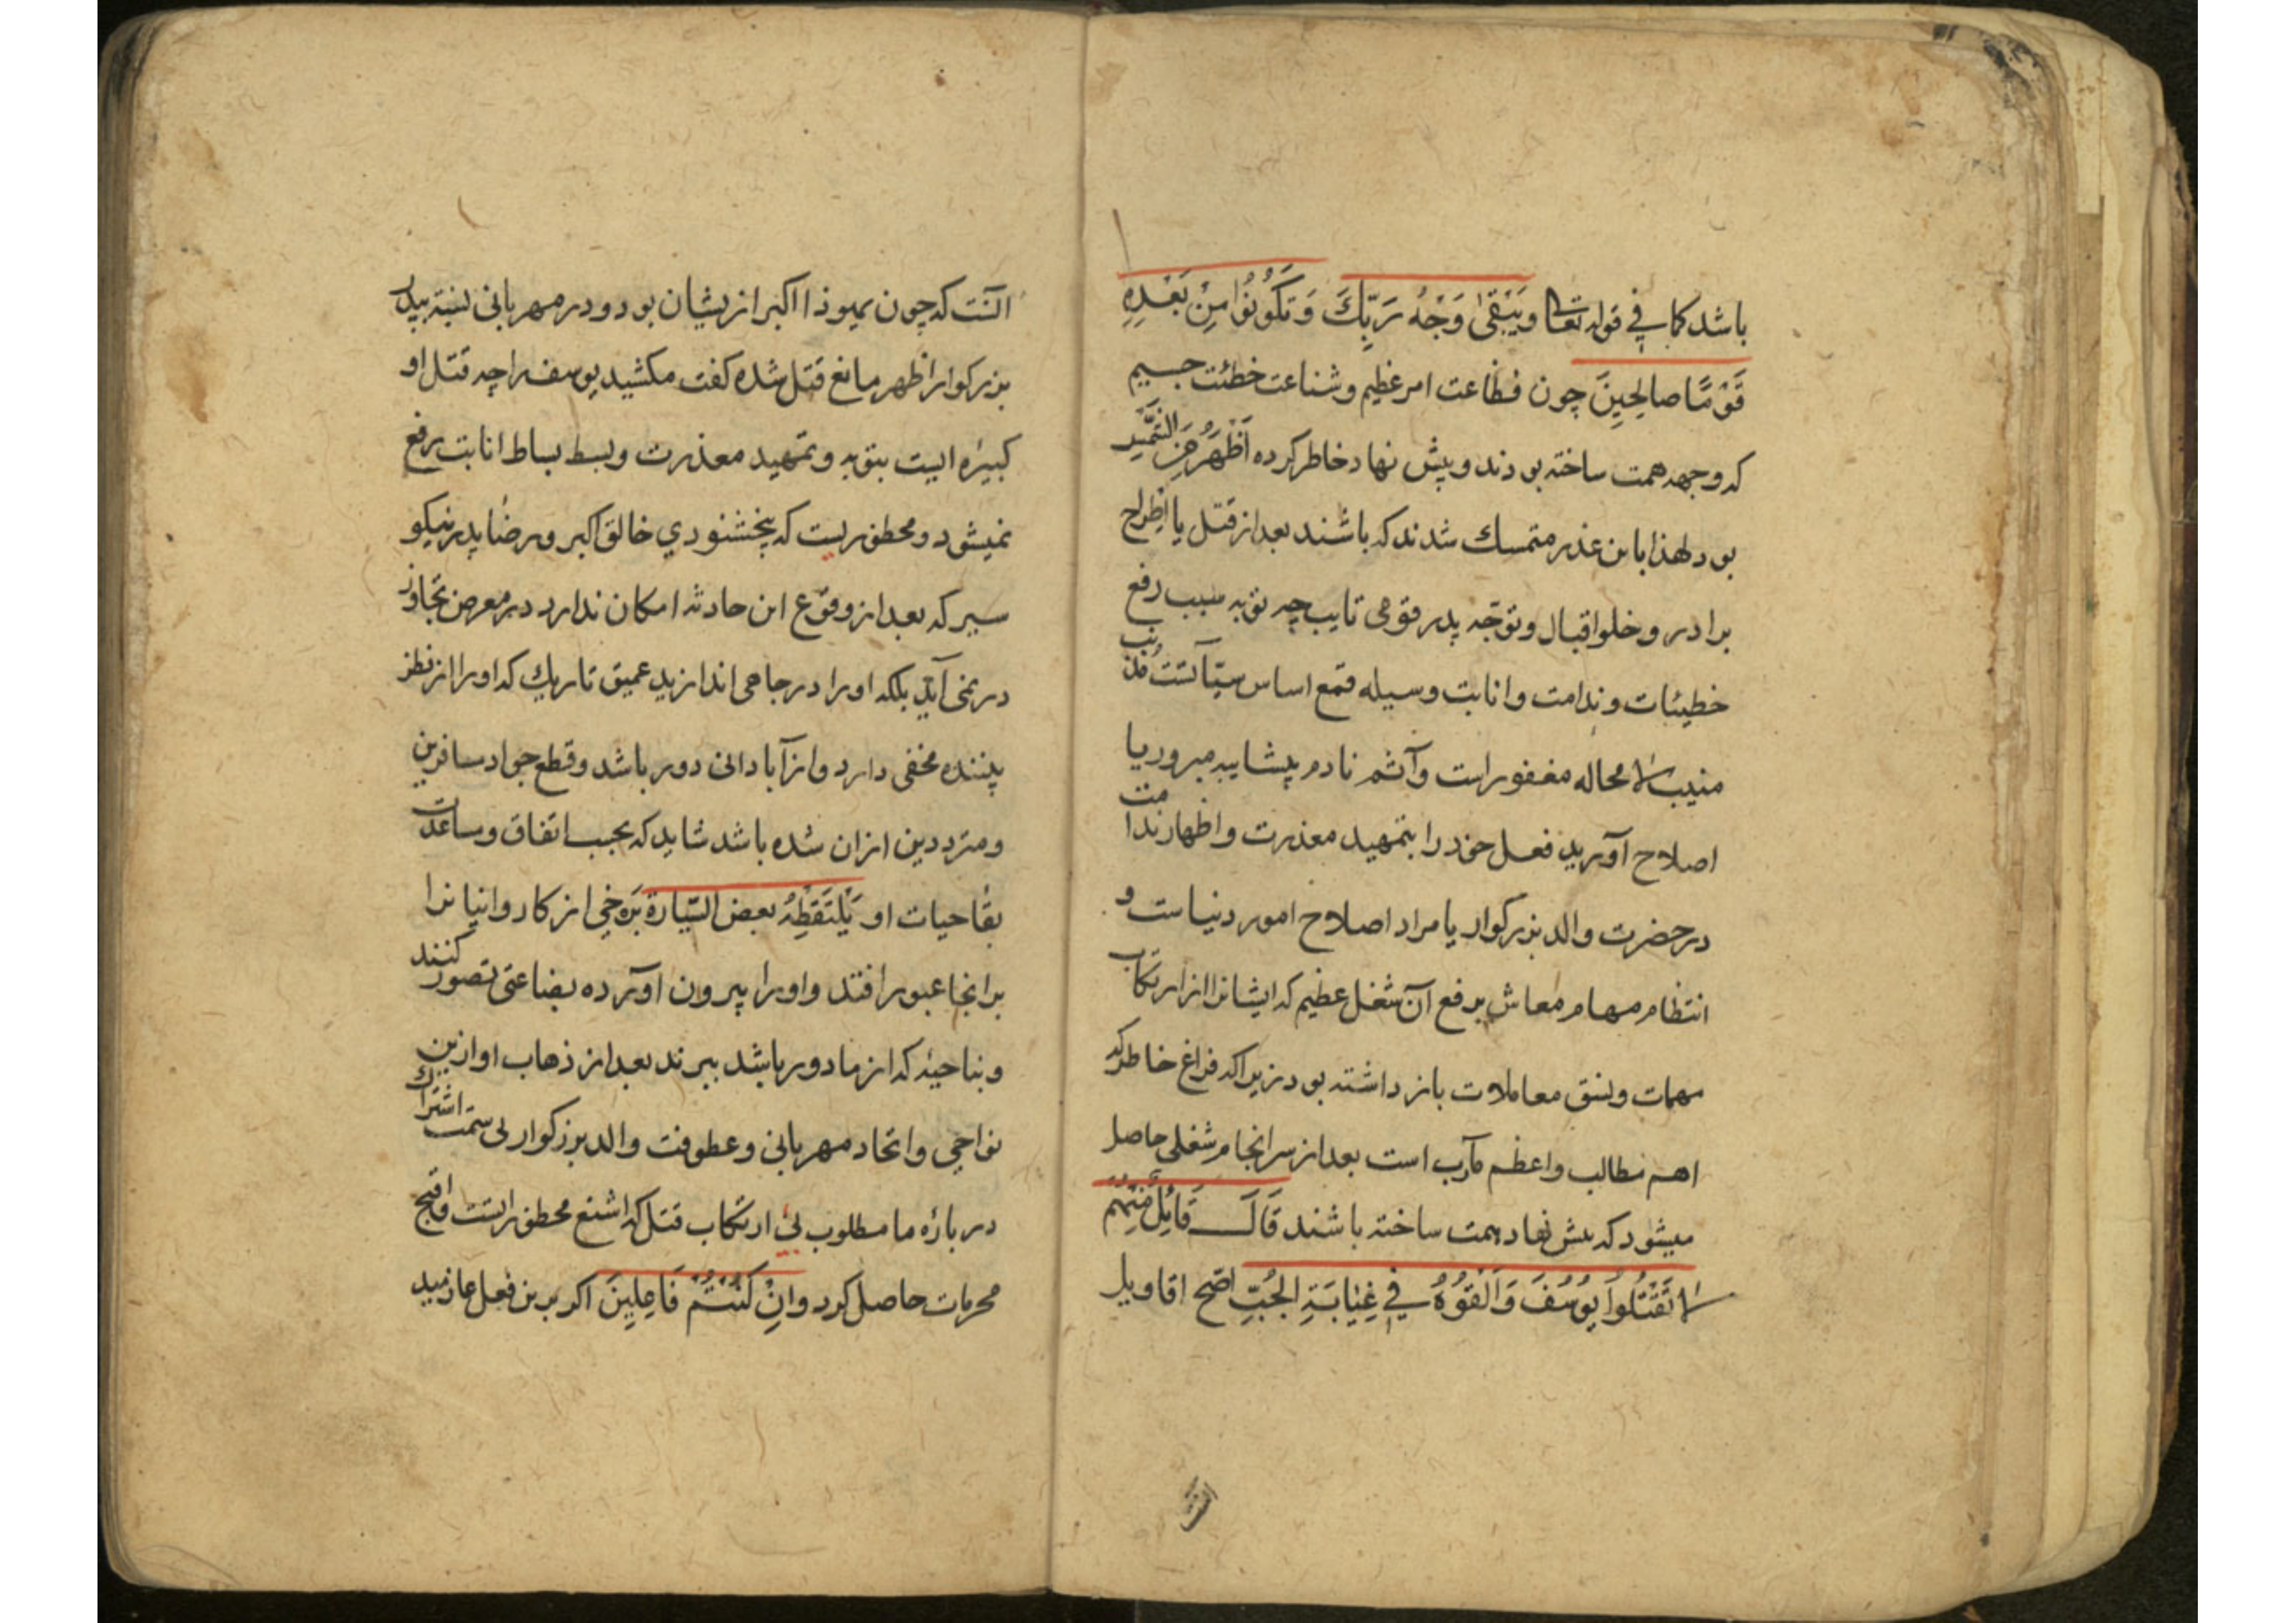 باشد كما في قوله تعالى و يَبْقَىٰ وَجْهُ رَبِّكَ وَتَكُونُوا مِنْ بَعْدِهِ
قَوْمًا صالِحِينَ چون فظاعت امر عظیم و شناعت خطئت جسیم
که وجهه همت ساخته بودند و پیش نهاد خاطر کرده اَظْهَرُ مِنَ
بود لهذا باین عذر متمسك شدند که باشند بعد از قتل یا اطراح
برادر و خلو اقبال و توجّه پدر قومی تایب چه توبه سبب رفع
خطیئات و ندامت و انابت وسیله قمع اساس سیّآتست
منیب لا محاله مغفورست و آثم نادم
اصلاح آورید فعل خود را بتمهید معذرت و اظهار ندامت
در حضرت والد بزرکوار یا مراد اصلاح امور دنیاست و
انتظام مهام معاش برفع آن شغل عظیم که ایشانرا از ارتکاب
مهمات و نسق معاملات باز داشته بود زیرا که فراغ خاطر که
اهم مطالب و اعظم مآرب است بعد از سرانجام شغلی حاصل
میشود که پیش نهاد همت ساخته باشند قَالَ قَائِلٌ مِنْهُمْ
لا تَقْتُلُوا یُوسُفَ وَاَلْقُوْهُ فِي غِیَابَةِ الجُبِّ اصّح اقاویل
آنست
آنست که چون یهوذا اکبر ازیشان بود و در مهربانی نسبة بپدر
بزرکوار اظهر مانع قتل شده کفت مکشید یوسف را چه قتل او
کبیره ایست بتوبه و تمهید معذرت و بسط بساط انابت رفع
نمیشود و محظوریست که بخشنودي خالق اکبر و رضا پدر نیکو
سیر که بعد از وقوع این حادثه امکان ندارد در معرض تجاوز
در نمی آید بلکه اورا در چاهی اندازید عمیق تاریك که اورا از نظر
بیننده مخفی دارد و از آبادانی دور باشد و قطع جواد مسافرین
و مترددین ازان شده باشد شاید که بحسب اتفاق و مساعدت
بقا حیات او یَلْتَقِطْهُ بعض السّیّارة برخی از کاروانیانرا
برانجا عبور افتد و اورا بیرون آورده بضاعتی تصور کنند
و بناحیهٔ که از ما دور باشد ببرند بعد از ذهاب او ازین
نواحی و اتحاد مهربانی و عطوفت والد بزرکوار بی سمت اشتراك
در بارهٔ ما مطلوب بی ارتکاب قتل که اشنع محظوراتست و اقبح
محرمات حاصل کردد وَاِنْ كُنْتُمْ فَاعِلِینَ اکر برین فعل عازمید